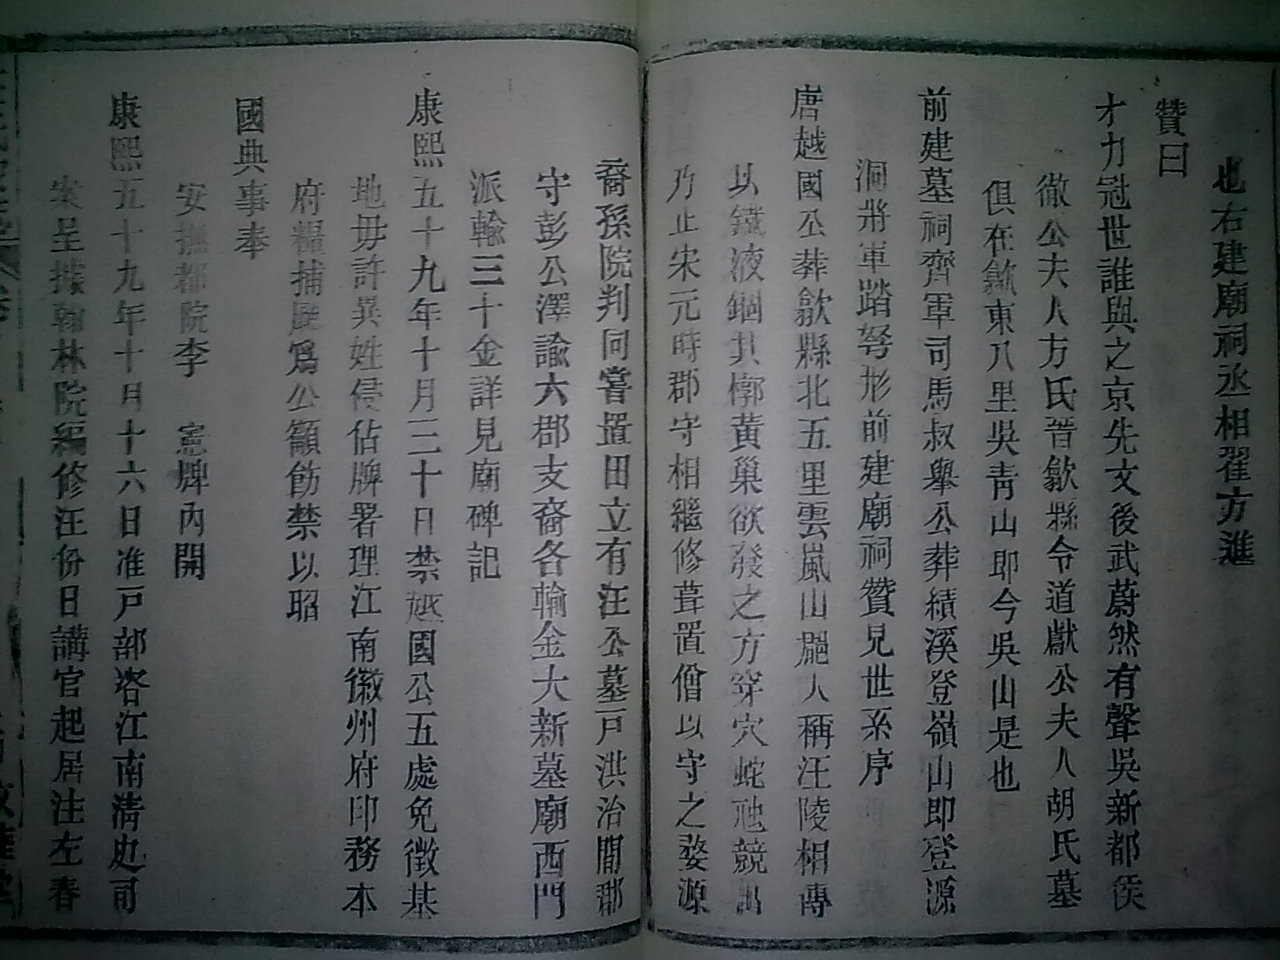 也右建廟祠丞相翟方進
贊曰
才力冠世誰與之京先文後武蔚然有聲吳新都侯
徹公夫人方氏晉歙縣令道獻公夫人胡氏墓
俱在歙東八里吳青山即今吳山是也
前建墓祠齊軍司馬叔舉公葬績溪登嶺山即登源
洞將軍踏弩形前建廟祠贊見世系序
唐越國公葬歙縣北五里雲嵐山郡人稱汪陵相傳
以鐵液錮其槨黃巢欲發之方穿穴蛇虺競出
乃止宋元時郡守相繼修葺置僧以守之婺源
裔孫院判同嘗置田立有汪公墓戸洪治間郡
守彭公澤諭六郡支裔各輸金大新墓廟西門
派輸三十金詳見廟碑記
康熙五十九年十月三十日禁越國公五處免徵基
地毋許異姓侵佔牌署理江南徽州府印務本
府糧捕廳爲公籲飭禁以昭
國典事奉
安撫都院李 憲牌內開
康熙五十九年十月十六日准戸部咨江南清吏司
案呈據翰林院編修汪份日講官起居注左春